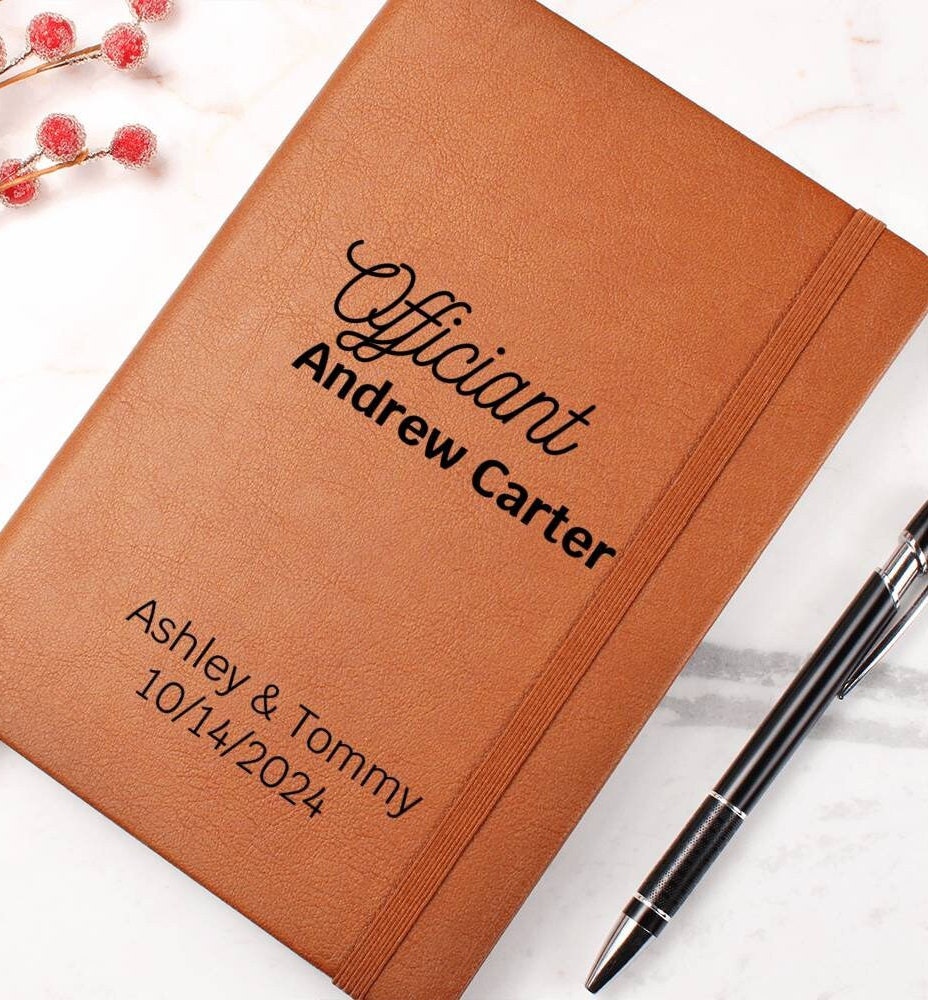 Officiant
Andrew Carter
Ashley & Tommy
10/14/2024